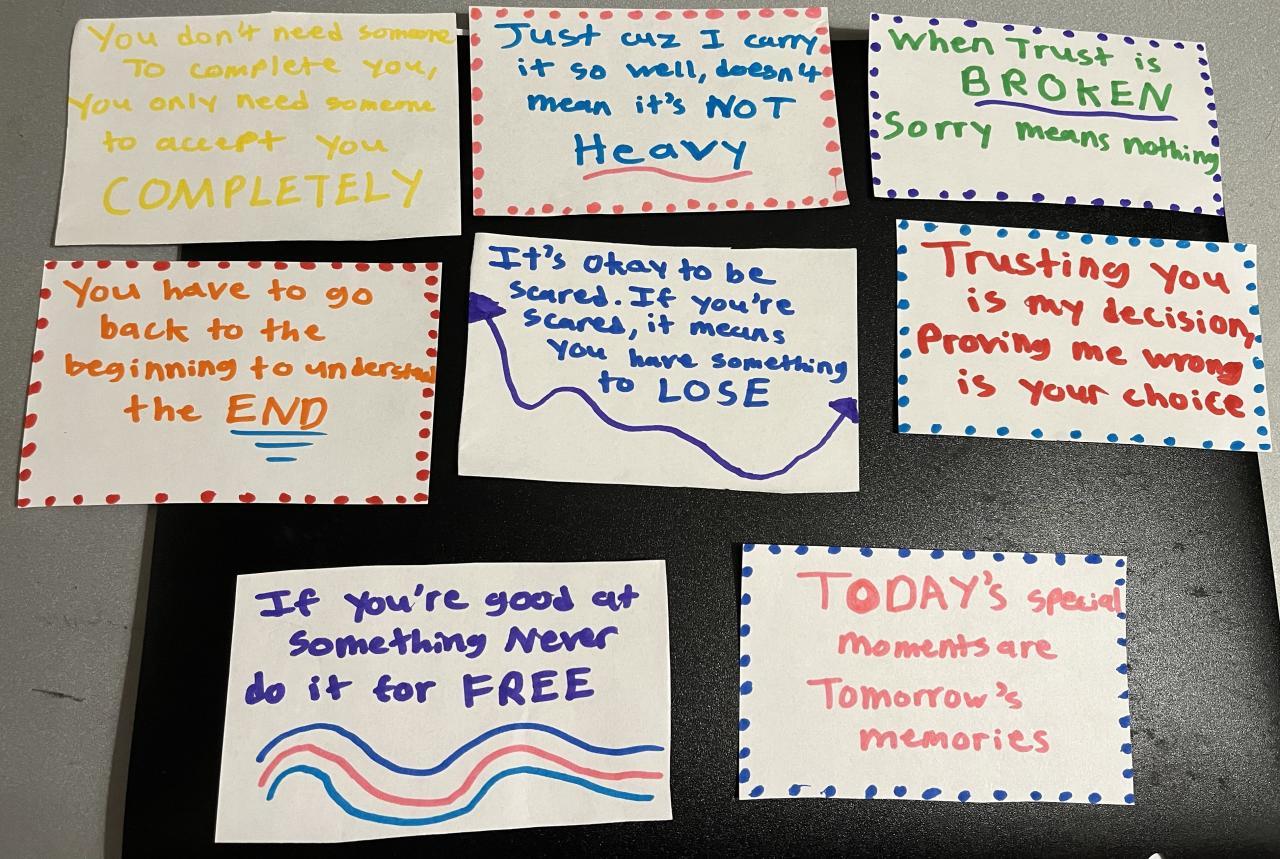 You don't need someone
To complete you,
you only need someone
to accept you
COMPLETELY
Just cuz I carry
it so well, doesn't
mean it's NOT
Heavy
When Trust is
BROKEN
Sorry means nothing
You have to go
back to the
beginning to understand
the END
It's okay to be
scared. If you're
scared, it means
you have something
to LOSE
Trusting you
is my decision,
Proving me wrong
is your choice
If you're good at
something Never
do it for FREE
TODAY's special
moments are
Tomorrow's
memories